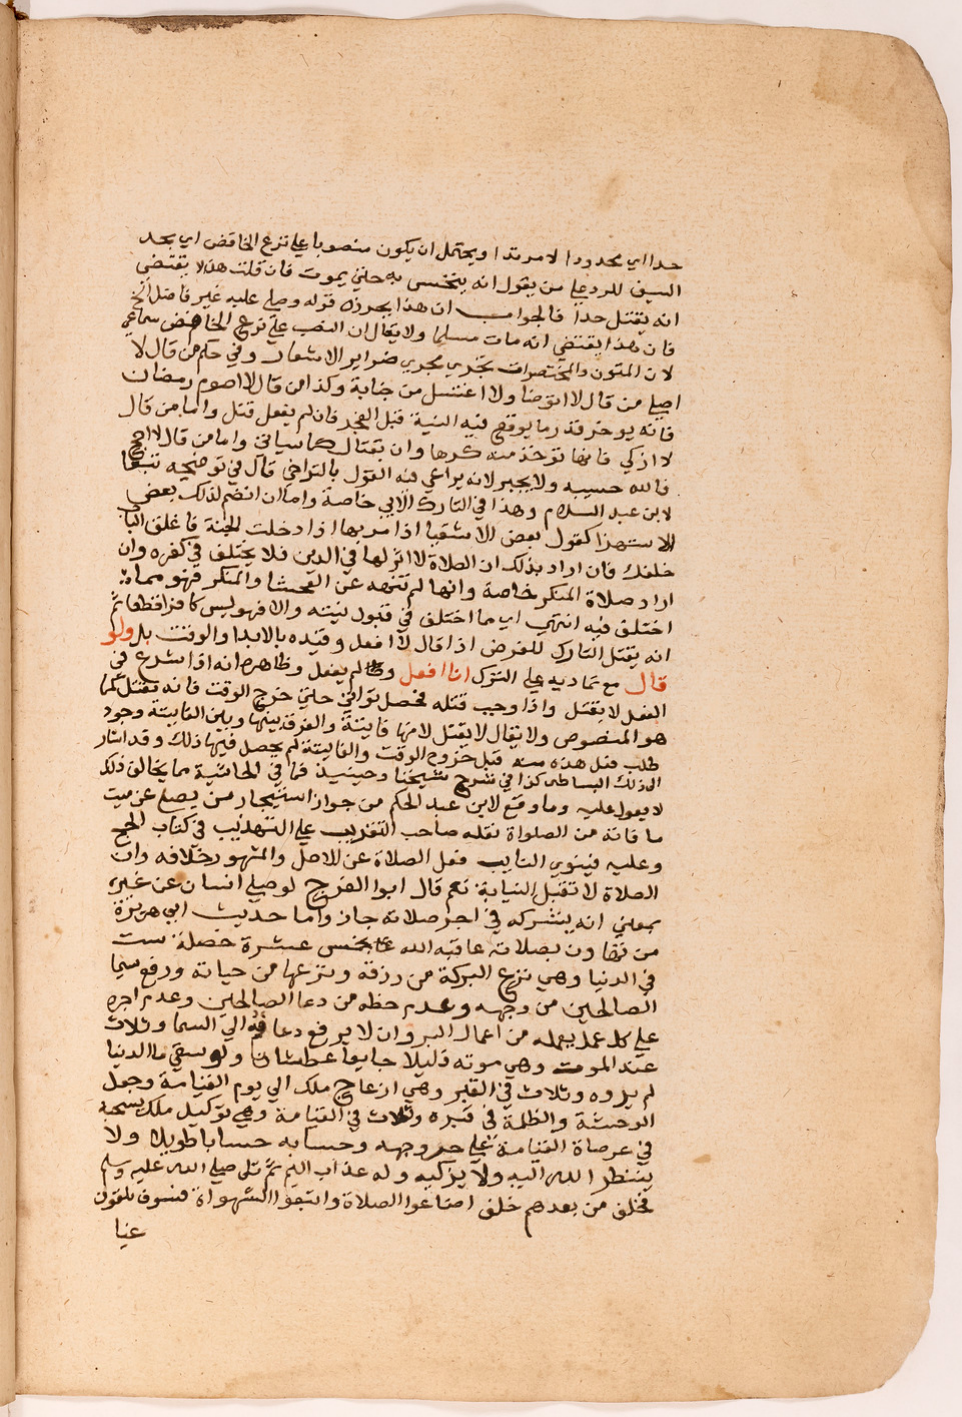 حدا اي محدودا لا مرتدا ويحتمل ان يكون منصوبا علي نزع الخافض اي بحد
السيف للرد علي من يقول انه ينخس به حتي يموت فان قلت هذا لا يقتضي
انه يقتل حدا فالجواب ان هذا يحرزه قوله وصلي عليه غير فاضل الخ
فان هذا يقتضي انه مات مسلما ولا يقال ان النصب علي نزع الخافض سماعي
لان المتون والمختصرات تجري مجري ضراير الاشعار وفي حكم من قال لا
اصلي من قال لا اتوضا ولا اغتسل من جنابة وكذا من قال لا اصوم رمضان
فانه يوخر قدر ما يوقع فيه النية قبل الفجر فان لم يفعل قتل واما من قال
لا ازكي فانها توخذ منه كرها وان بقتال كما سياتي واما من قال لا احج
فالله حسيبه ولا يجبر لانه يراعي فيه القول بالتراخي قال في توضيحه تبعا
لابن عبد السلام وهذا في التارك الابي خاصة واما ان انضم لذلك بعض
الاستهزا كقول بعض الاشقيا اذا مر بها اذا دخلت الجنة فاغلق الباب
خلفك فان اراد بذلك ان الصلاة لا اثر لها في الدين فلا يختلف في كفره وان
اراد صلاة المنكر خاصة وانها لم تنهه عن الفحشا والمنكر فهو مما
اختلف فيه انتهي اي مما اختلف في قبول نيته والا فهو ليس كافرا قطعا ثم
انه يقتل التارك للفرض اذا قال لا افعل وقيده بالابدا والوقت بل ولو
قال مع تماديه علي الترك انا افعل ولم يفعل وظاهره انه اذا شرع في
الفعل لا يقتل واذا وجب قتله فحصل تواني حتي خرج الوقت فانه يقتل كما
هو المنصوص ولا يقال لا يقتل لانها فايتة والفرق بينها وبين الفايتة وجود
طلب فعل هذه منه قبل خروج الوقت والفايتة لم يحصل فيها ذلك وقد اشار
الي ذلك البساطي كذا في شرح شيخنا وحينيذ فما في الحاشية مما يخالف ذلك
لا يعول عليه وما وقع لابن عبد الحكم من جواز استيجار من يصلي عن ميت
ما فاته من الصلواة نقله صاحب التقريب علي التهذيب في كتاب الحج
وعليه فينوي النايب فعل الصلاة عن الاصل والمشهور خلافه وان
الصلاة لا تقبل النيابة نعم قال ابوا الفرج لو صلي انسان عن غيره
بمعني انه يشركه في اجر صلاته جاز واما حديث ابي هريرة
من تهاون بصلاته عاقبه الله بخمس عشرة خصلة ست
في الدنيا وهي نزع البركة من رزقه ونزعها من حياته ورفع سيما
الصالحين من وجهه وعدم حظه من دعا الصالحين وعدم اجره
علي كل عمل يعمله من اعمال البر وان لا يرفع دعاوه الي السما وثلاث
عند الموت وهي موته ذليلا جايعا عطشان ولو سقي ما الدنيا
لم يروه وثلاث في القبر وهي ازعاج ملك الي يوم القيامة وجعل
الوحشة والظلمة في قبره وثلاث في القيامة وهي توكيل ملك يسحبه
في عرصاة القيامة علي حر وجهه وحسابه حسابا طويلا ولا
ينظر الله اليه ولا يزكيه وله عذاب اليم ثم تلي صلي الله عليه وسلم
فخلف من بعدهم خلف اضاعوا الصلاة واتبعوا الشهواة فسوف يلقون
غيا